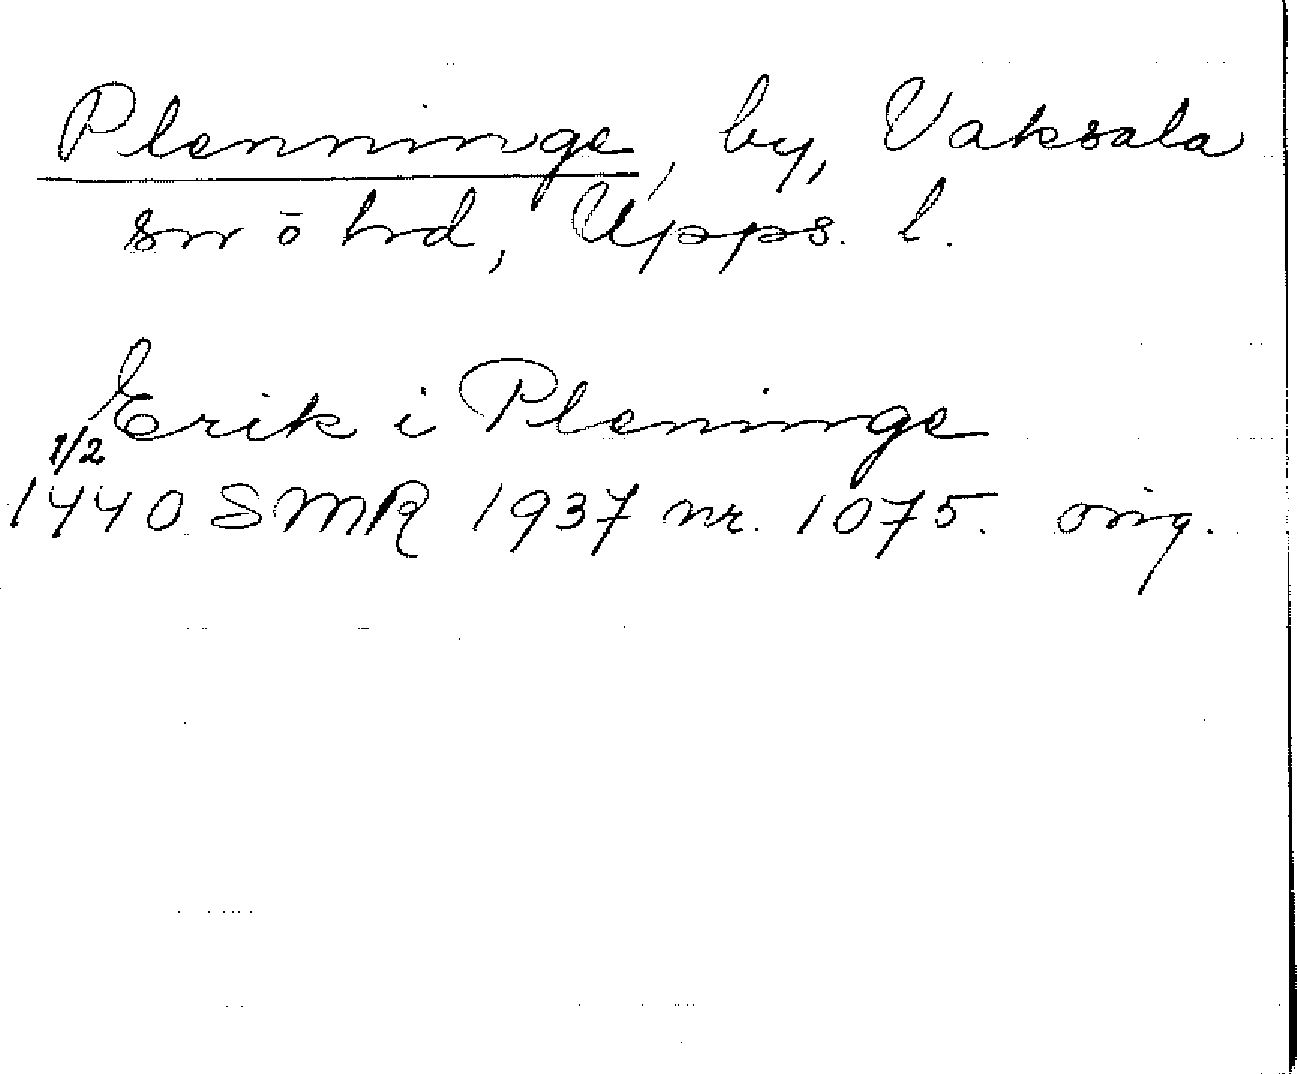 Plenninge, by, Vaksala
sn ō hd, Upps. l.
Erik i Pleninge
1/2
1440 SMR 1937 nr. 1075. orig.